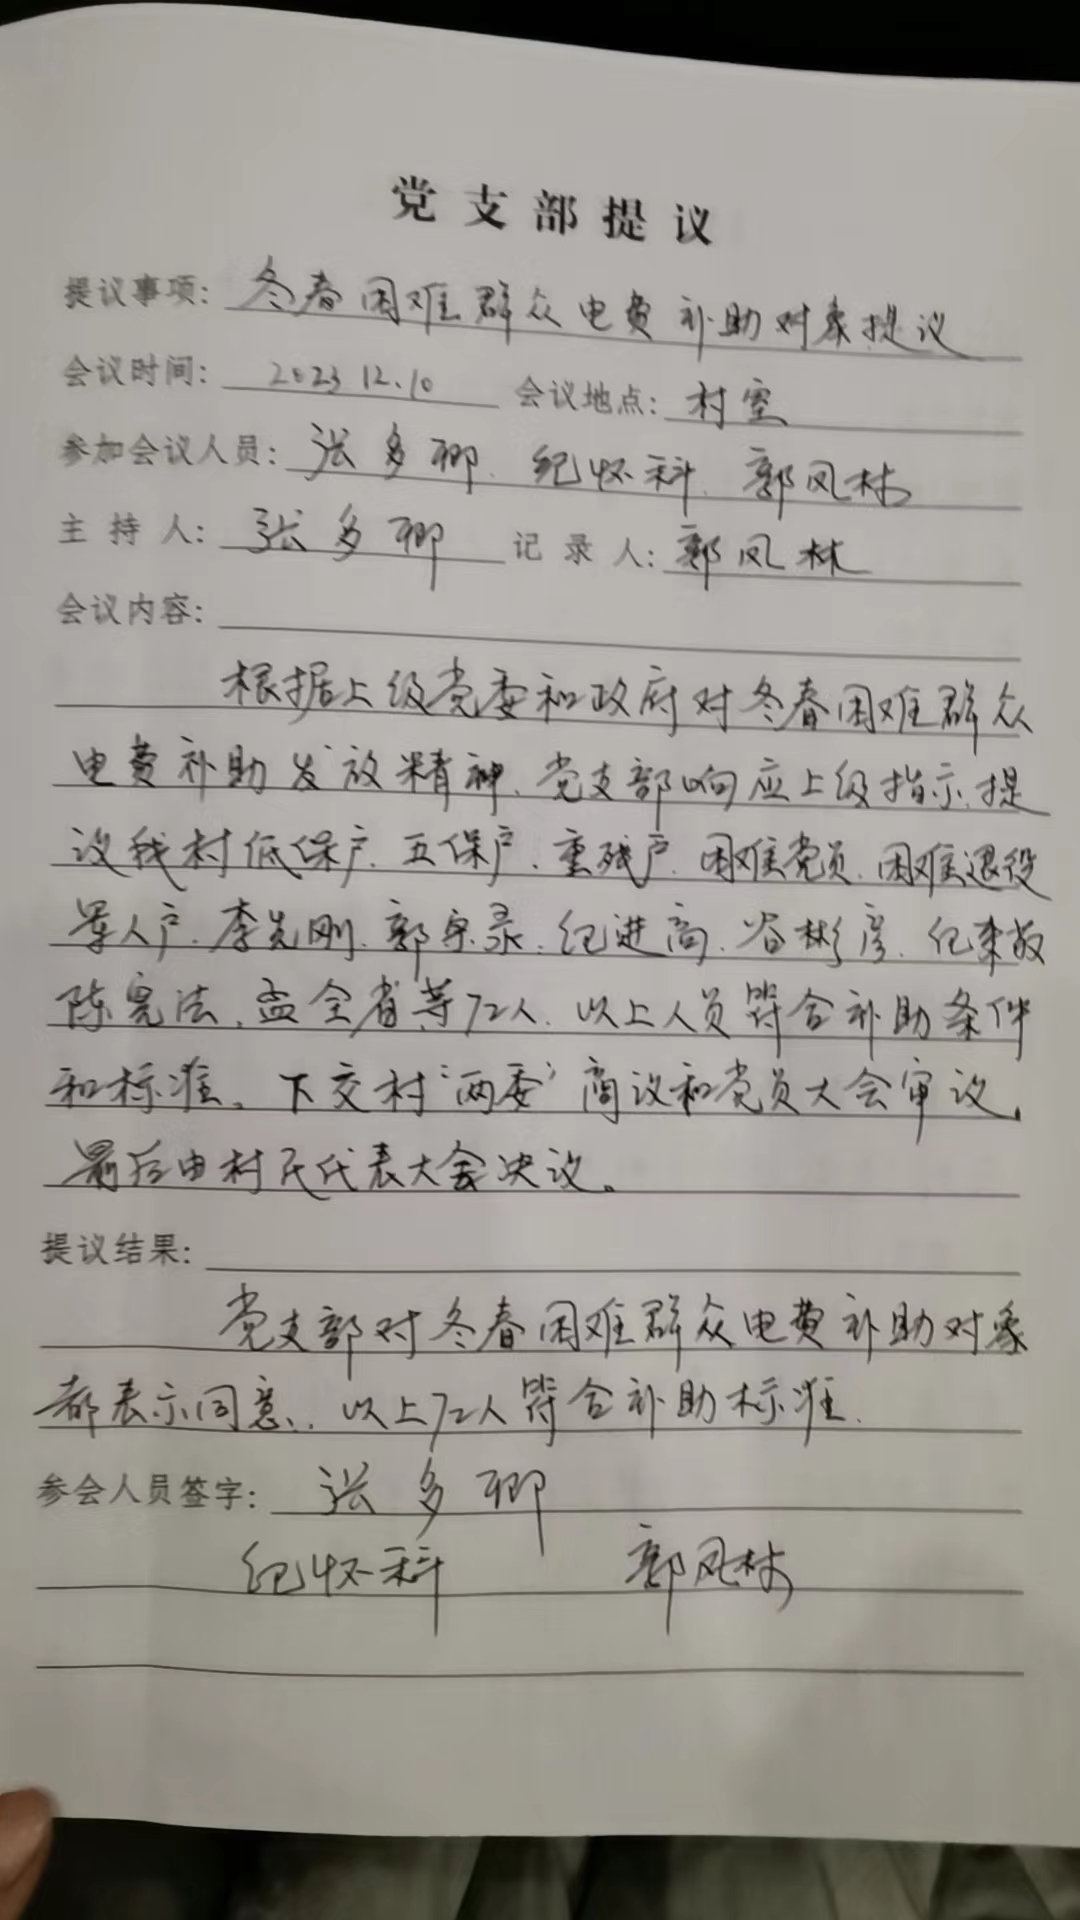 党支部提议
提议事项: 冬春困难群众电费补助对象提议
会议时间: 2023 12.10 会议地点: 村室
参加会议人员: 张多卿. 纪怀科. 郭风林
主持人: 张多卿 记录人: 郭风林
会议内容:
根据上级党委和政府对冬春困难群众
电费补助发放精神、党支部响应上级指示、提
议我村低保户、五保户、重残户、困难党员、困难退役
军人户、李先刚、郭宗录、纪进商、谷彬彦、纪
陈宪法、孟全省等72人、以上人员符合补助条件
和标准。下交村“两委”商议和党员大会审议,
最后由村民代表大会决议。
提议结果:
党支部对冬春困难群众电费补助对象
都表示同意、以上72人符合补助标准.
参会人员签字: 张多卿
纪怀科 郭风林